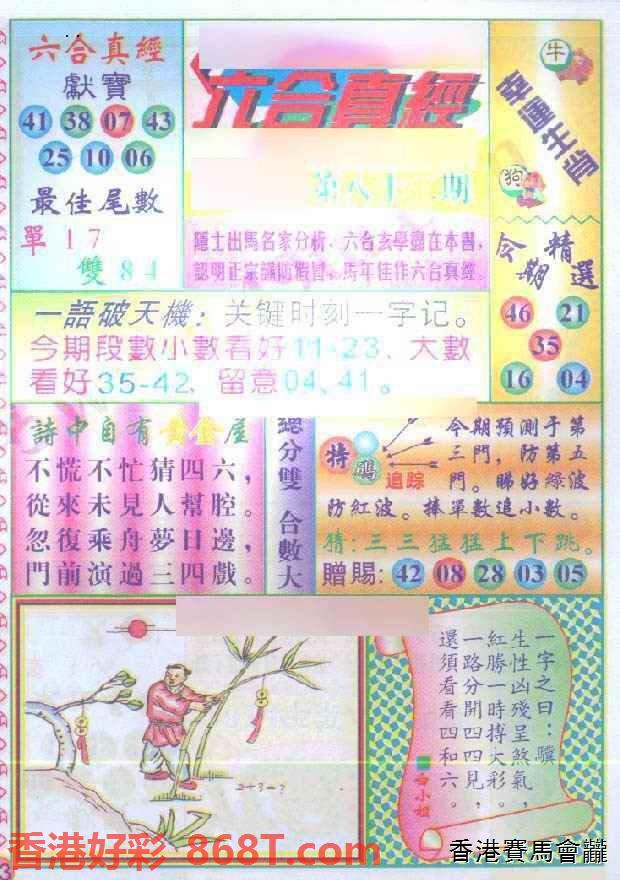 六合真經
獻寶
41 38 07 43
25 10 06
最佳尾數
單17
雙84
六合真經
期
隱士出馬名家分析、六合玄學盡在本書,
認明正宗謹防假冒、馬年佳作六合真經。
牛
幸運生肖
狗
今期精選
46 21
35
16 04
一語破天機:关键时刻一字记。
今期段數小數看好11-23、大數
看好35-42、留意04、41。
詩中自有黃金屋
不慌不忙猜四六,
從來未見人幫腔。
忽復乘舟夢日邊,
門前演過三四戲。
總分雙 合數大
特碼
追踪
今期預測于第
三門,防第五
門。睇好綠波
防紅波。捧單數追小數。
猜:三三猛猛上下跳。
贈賜:42 08 28 03 05
2+3=?
一字之曰:驥
生性凶殘呈煞氣,
紅勝一時搏大彩。
一路分開四四見,
還須看看四和六。
白小姐
香港好彩 868T.com
香港賽馬會